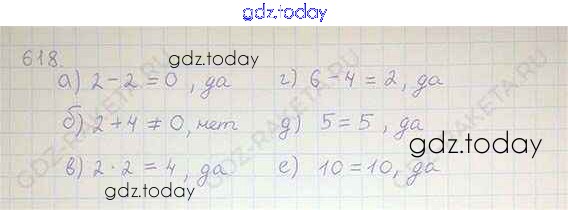 gdz.today
618.
gdz.today
а) 2 - 2 = 0, да г) 6 - 4 = 2, да
б) 2 + 4 ≠ 0, нет д) 5 = 5, да
gdz.today
в) 2 · 2 = 4, да е) 10 = 10, да
gdz.today
GDZ-RAKETA.RU